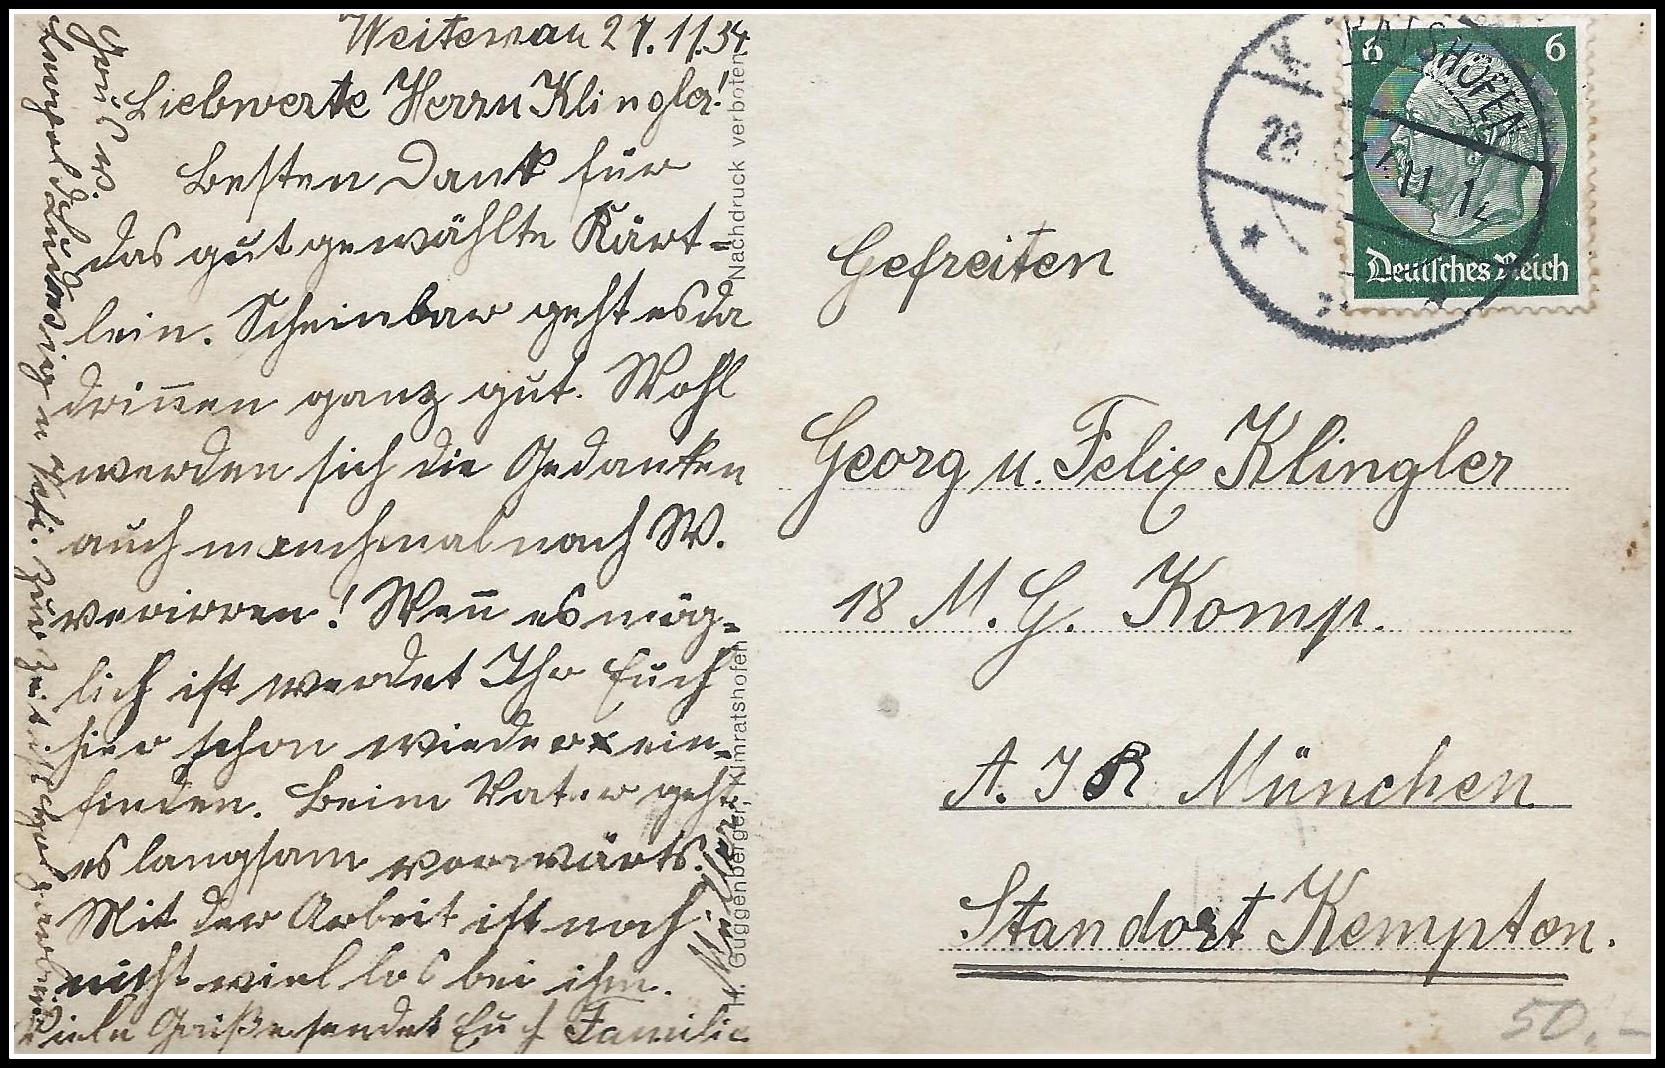 Weitenau 27.11.34
Liebwerte Herrn Klingler!
Besten Dank für
das gut gewählte Kärt=
lein. Scheinbar geht es da
drinnen ganz gut. Wohl
werden sich die Gedanken
auch manchmal nach W.
verirren! Wenn es mög=
lich ist werdet Ihr Euch
hier schon wieder ein=
finden. Beim Vater geht
es langsam vorwärts.
Mit der Arbeit ist noch
nicht viel los bei ihm.
Viele Grüße sendet Euch Familie
Gruß v.
Ludwig u. zur Zeit
Nachdruck verboten
H. Guggenberger, Kimratshofen
KIMRATSHOFEN
28. 11. 34
6 6
Deutsches Reich
Gefreiten
Georg u. Felix Klingler
18 M. G. Komp.
A. I R München
Standort Kempten.
50.-